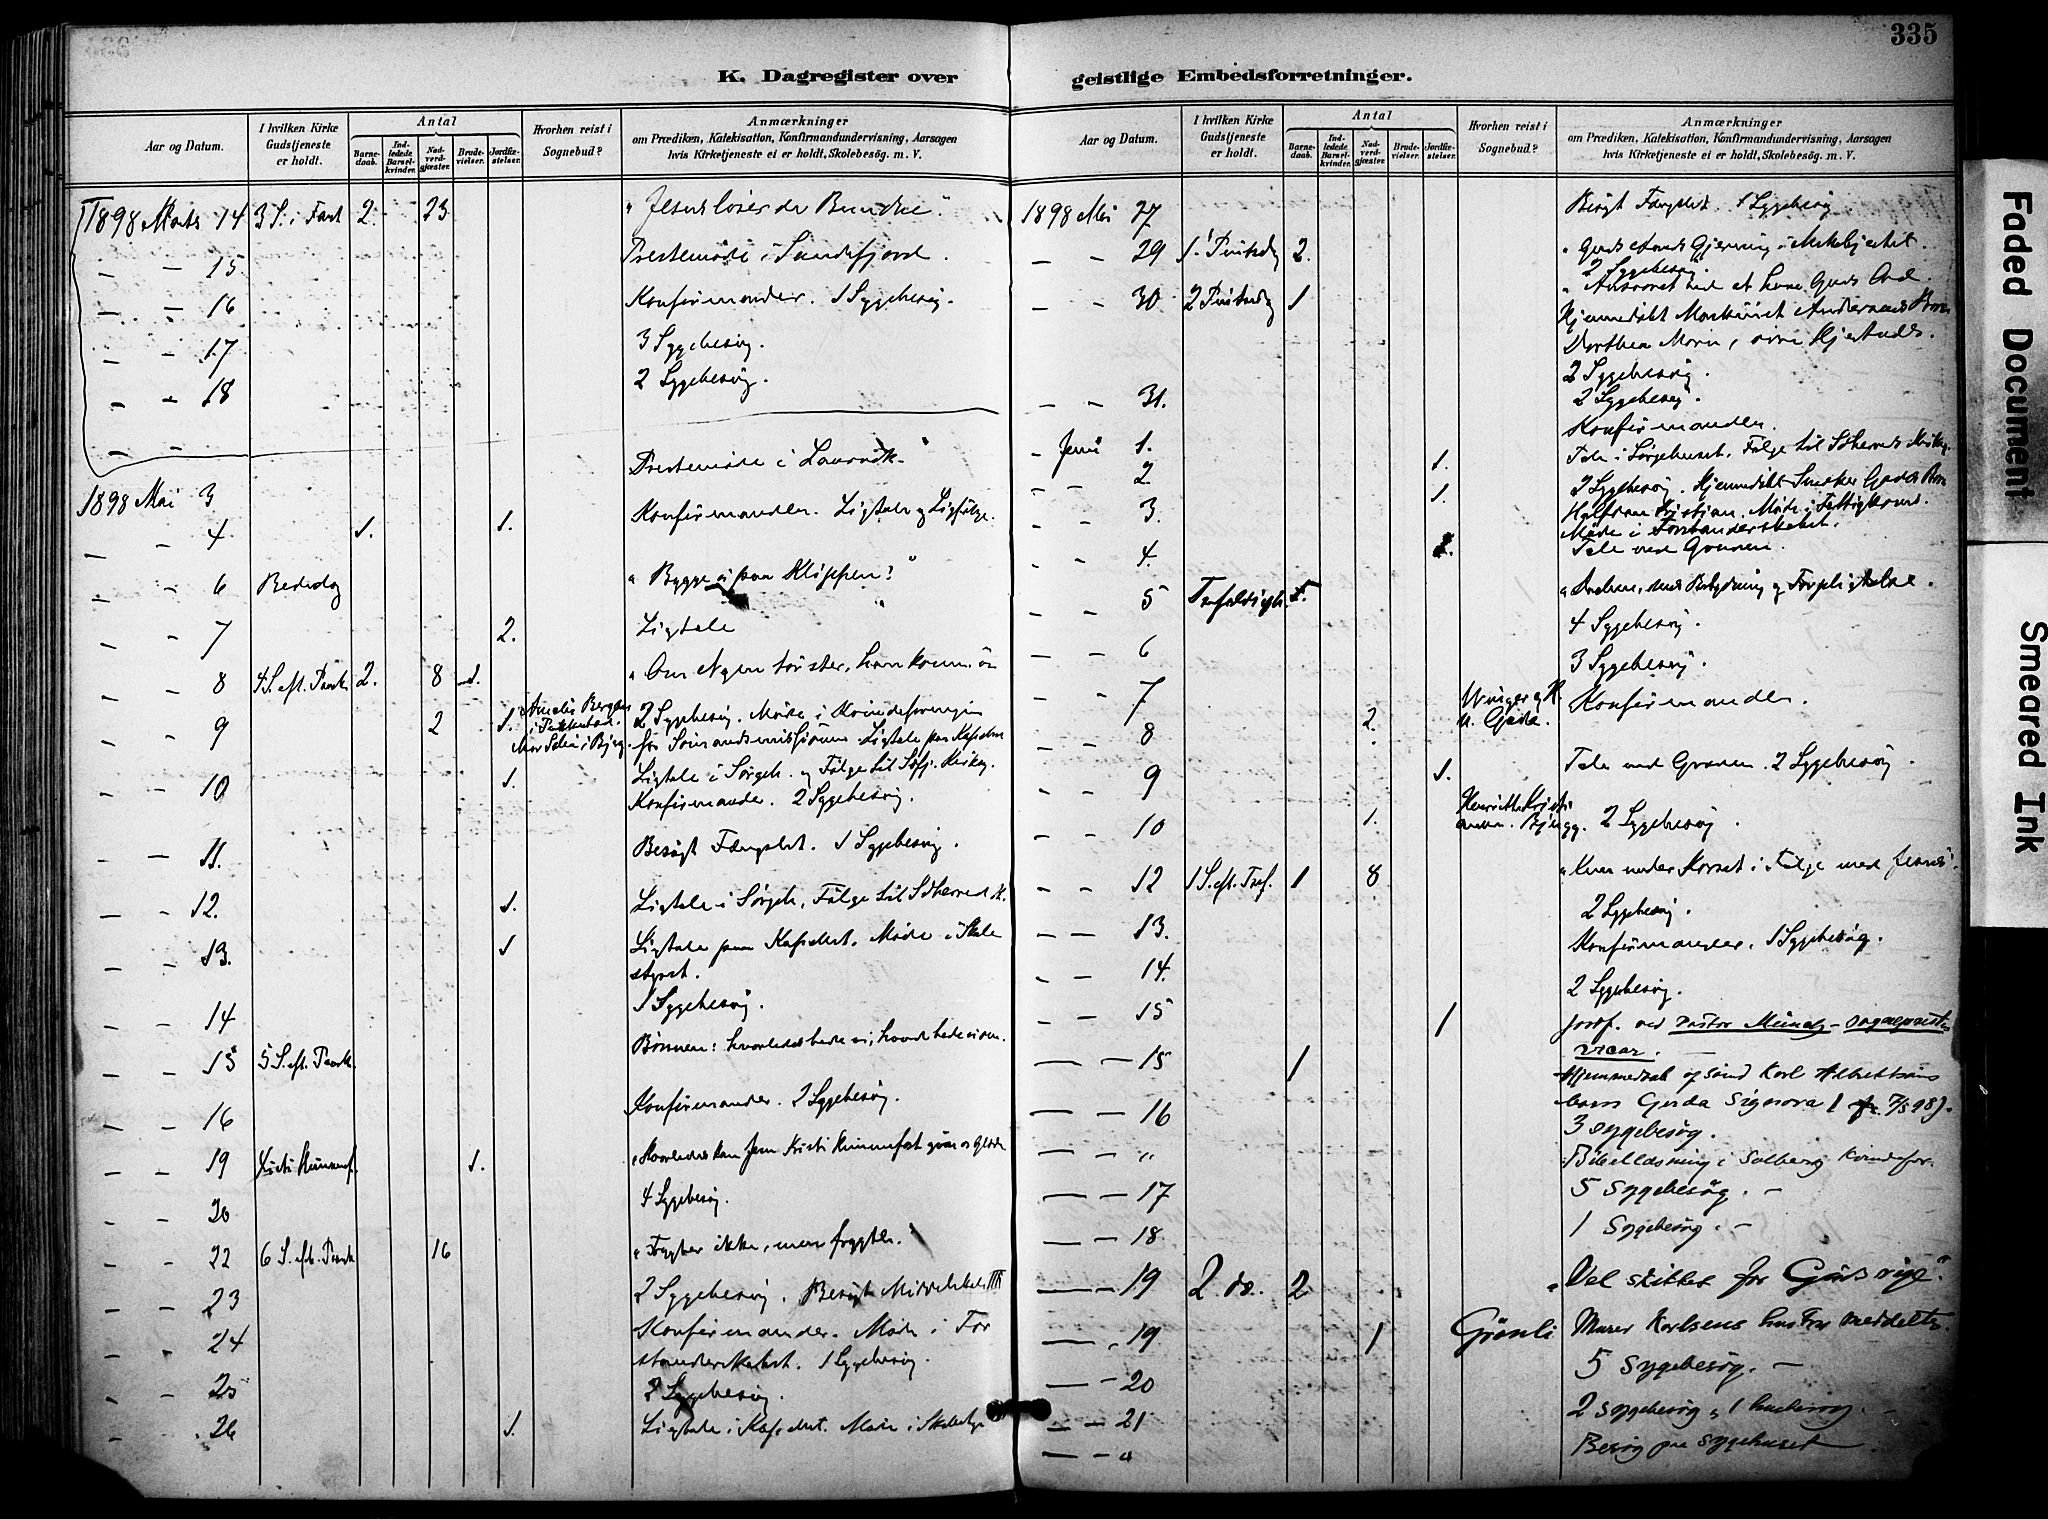 335
K. Dagregister over geistlige Embedsforretninger.
Aar og Datum.
I hvilken Kirke Gudstjeneste er holdt.
Antal
Barnedaab.
Indledede Barselkvinder.
Nadverdgjæster.
Brudevielser.
Jordfæstelser.
Hvorhen reist i Sognebud?
Anmærkninger
om Prædiken, Katekisation, Konfirmandundervisning, Aarsagen
hvis Kirketjeneste ei er holdt, Skolebesög. m. V.
1898 Marts 14 3 S. i Fast 2. 23 "Jesus löser de Bundne".
— — 15 Prestemöde i Sandefjord.
— — 16 Konfirmander. 1 Sygebesög.
— — 17 3 Sygebesög.
— — 18 2 Sygebesög.
— —
Prestemöde i Laurvik"
1898 Mai 3
— — 4 1. 1. Konfirmander. Ligtale og Ligfölge.
— — 6 Bededag "Bygge vi paa Klippen?"
— — 7 2. Ligtale
— — 8 4 S. eft. Paask. 2. 8 1. "Om Nogen törster, han komme
— — 9 2 1. 2 Sygebesög. Möde i Kvindeforening
for Sömandsmissionen. Ligtale paa Kapellet
— — 10 1. Ligtale i Sörgeh. og Fölge til Kirken.
Konfirmander. 2 Sygebesög.
— — 11. Besögt Fængslet. 1 Sygebesög.
— — 12. 1. Ligtale i Sörgeh. Fölge til Sdherred K.
— — 13. 1 Ligtale paa Kapellet. Möde i Skole
styret.
— — 14 1 Sygebesög.
— — 15 5 S. eft. Paask. Bönnen: hvorledes bede vi, hvad bede vi om.
— — 16 Konfirmander. 2 Sygebesög.
— — 19 Kristi Himmelf. 1. "Hvorledes kan Jesu Kristi Himmelfart give os Glæde
— — 20 4 Sygebesög.
— — 22 6 S. eft. Paask 16 "Frygter ikke, men frygter."
— — 23 2 Sygebesög. Besögt Middelskole III
— — 24 Konfirmander. Möde i For
standerskabet. 1 Sygebesög.
— — 25 2 Sygebesög.
— — 26 1. Ligtale i Kapellet. Möde i
Aar og Datum.
I hvilken Kirke Gudstjeneste er holdt.
Antal
Barnedaab.
Indledede Barselkvinder.
Nadverdgjæster.
Brudevielser.
Jordfæstelser.
Hvorhen reist i Sognebud?
Anmærkninger
om Prædiken, Katekisation, Konfirmandundervisning, Aarsagen
hvis Kirketjeneste ei er holdt, Skolebesög. m. V.
1898 Mai 27 Besögt Fængslet. 1 Sygebesög
— — 29 1. Pintsedag 2. "Guds Aands Gjerning i Menskehjertet.
2 Sygebesög.
— — 30 2 Pintsedag 1 "Ansvaret ved at have Guds Aand.
Hjemmedöbt Maskinist Andersens Barn
Dorthea Marie,
2 Sygebesög.
— — 31. 2 Sygebesög.
Konfirmander.
Juni 1. 1. Tale i Sörgehuset. Fölge til Sdherreds Kirkeg.
— — 2 1. 2 Sygebesög. Hjemmedöbt Barn
— — 3. Halfdan Kristian. Möde i Fattigkomm.
Möde i Formandskabet.
— — 4. 1. Tale ved Graven.
— — 5 Trefoldigh. "Daaben, dens Betydning og Forpligtelse.
4 Sygebesög.
— — 6 3 Sygebesög.
— — 7 Konfirmander.
— — 8 2.
— — 9 1. Tale ved Graven. 2 Sygebesög.
— — 10 1. 2 Sygebesög.
— — 12 1 S. eft. Tref. 1 8 "Kun under Korset i Fölge med Jesus".
2 Sygebesög.
— — 13. Konfirmander. 1 Sygebesög.
— — 14. 2 Sygebesög.
— — 15 1 Jordf. ved Pastor Münch - sogneprestens
vicar. —
— — 15 1 Hjemmedaab af Smd Karl Albertsens
barn Gerda Signora (f. 7/5 98).
— — 16 3 sygebesög.
— — " Bibellæsning i Solberg kvindefor.
— — 17 5 sygebesög. —
— — 18 1 sygebesög. —
— — 19 2 do. 2 "Vel skikket for Guds rige".
— — 19 1 Grönli Murer Karlsens hustru meddelte.
5 sygebesög. —
— — 20 2 sygebesög, 1 husbesög. —
— — 21 Besög paa sygehuset.
— — "
Faded Document
Smeared Ink